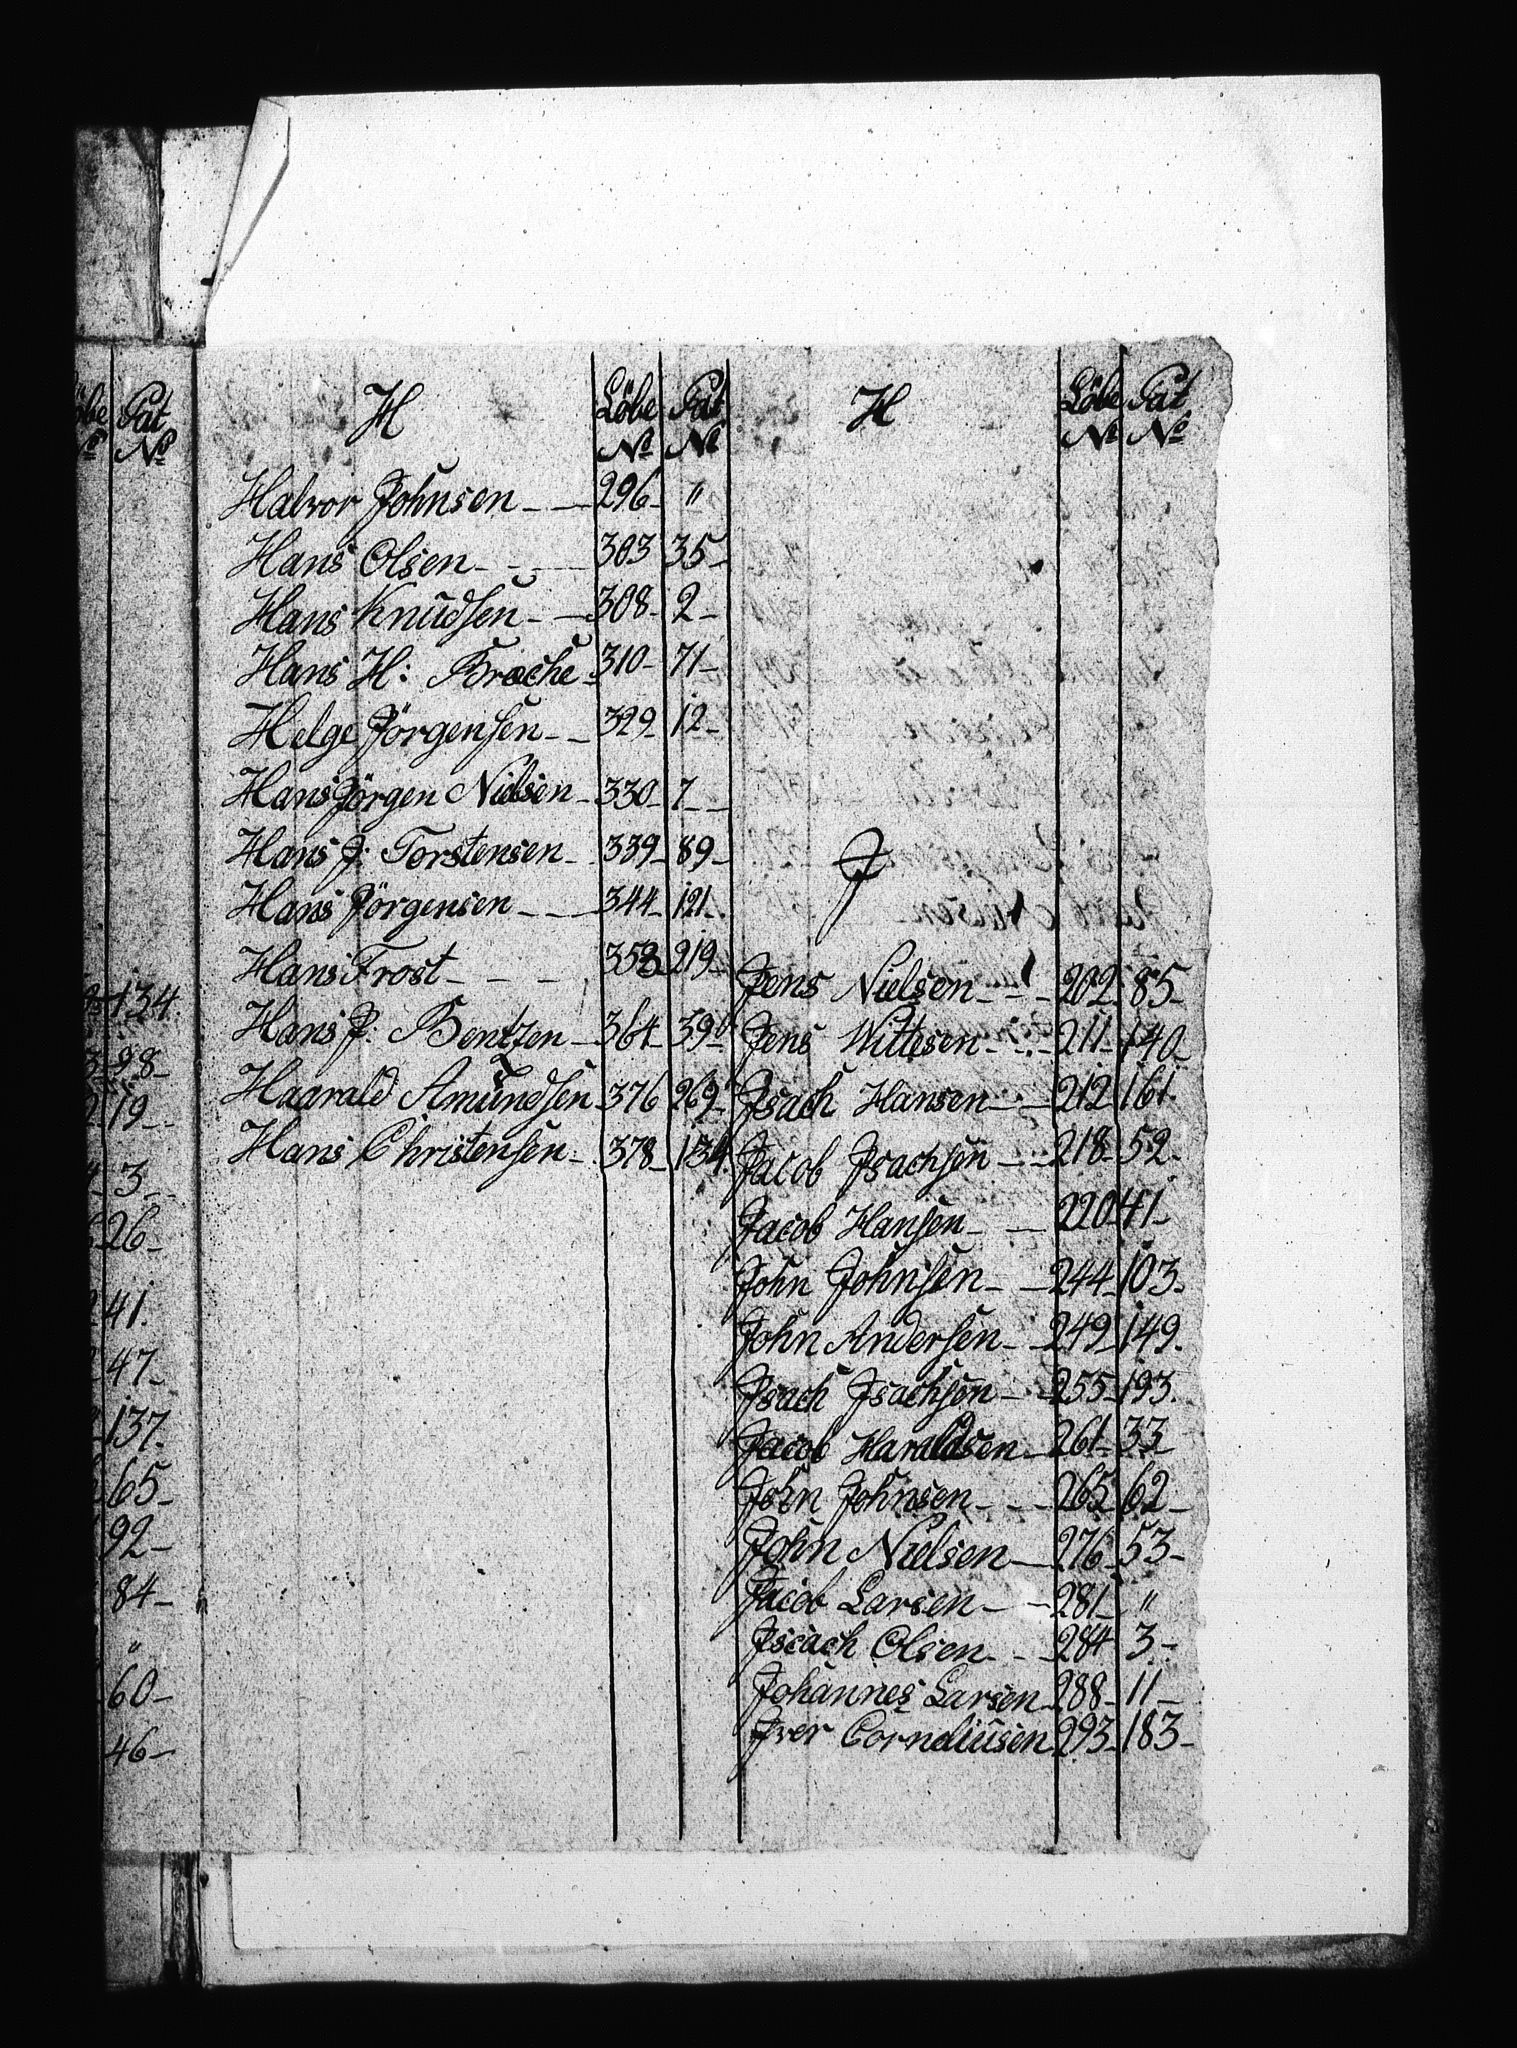 Löbe Pat
No No
134.
98-
19-
3-
26-
41.
47-
137.
65-
92-
84-
"
60-
46-
H Löbe No Pat No
Halvor Johnsen 296 "
Hans Olsen 303 35
Hans Knudsen 308 2
Hans H: Brache 310 71
Helge Jörgensen 329 12
Hans Jörgen Nielsen 330 7
Hans J: Torstensen 339 89
Hans Jörgensen 344 121
Hans Frost 219
Hans J: Bentzen 364 39
Haarald Amundsen 376 269
Hans Christensen 378 134
H Löbe No Pat No
J
Jens Nielsen 202 85
Jens Wittesen 211 140
Jsach Hansen 212 161
Jacob Jsachsen 218 52
Jacob Hansen 220 41
John Johnsen 244 103
John Andersen 249 149
Jsach Jsachsen 255 193
Jacob Haraldsen 261 33
John Johnsen 265 62
John Nielsen 276 53
Jacob Larsen 281 "
Jsaach Olsen 284 3
Johannes Larsen 288 11
Jver Corneliusen 293 183